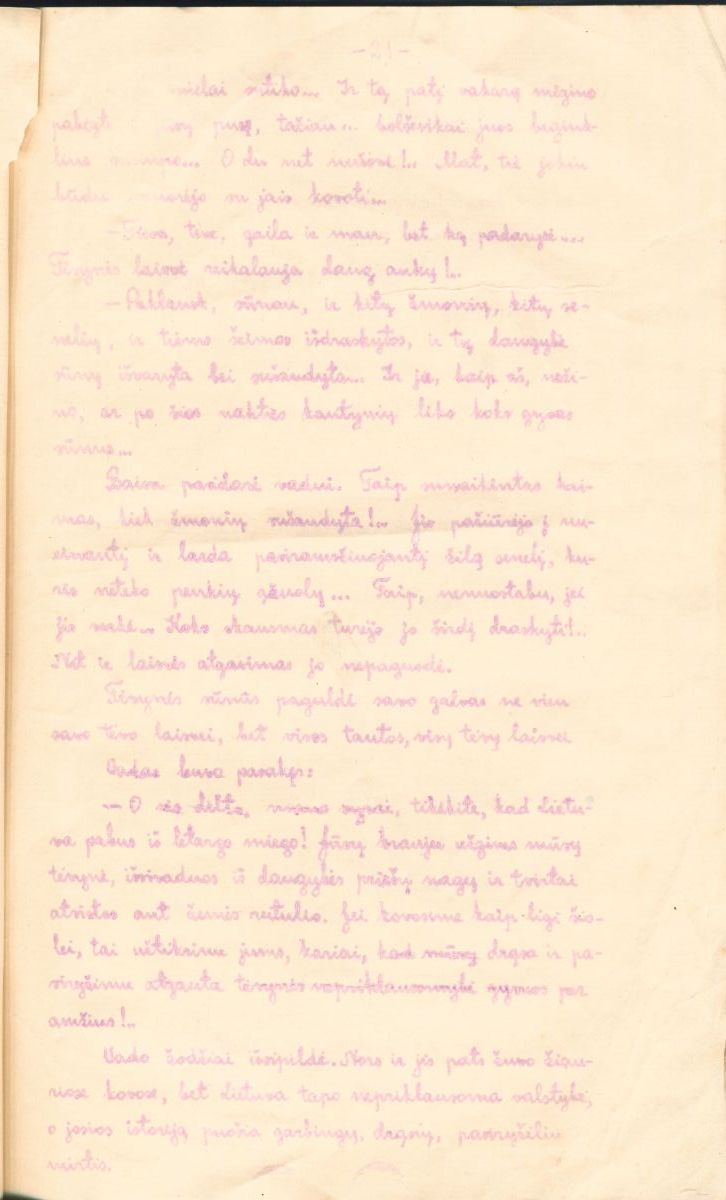 - 21 -
mielai sutiko... Ir tą patį vakarą mėgino
pusę, tačiau... bolševikai juos begink-
lius O du net nušovė!.. Mat, tie jokiu
būdu nenorėjo su jais kovoti...
- Tėve, tėve, gaila ir man, bet ką padarysi...
Tėvynės laisvė reikalauja daug aukų!..
- Paklausk, sūnau, ir kitų žmonių, kitų se-
nelių, ir tiems šeimos išdraskytos, ir tų daugybė
sūnų išvaryta bei sušaudyta... Ir jie, kaip aš, neži-
no, ar po šios nakties kautynių liko koks gyvas
sūnus...
Baisu pasidarė vadui. Taip sunaikintas kai-
mas, kiek žmonių sušaudyta!.. Jis pažiūrėjo į nu-
ir lazda pasiramsčiuojantį žilą senelį, ku-
ris neteko penkių ąžuolų... Taip, nenuostabu, jei
jis verkė... Koks skausmas turėjo jo širdį draskyti!..
Net ir laisvės atgavimas jo nepaguodė.
Tėvynės sūnūs paguldė savo galvas ne vien
savo tėvo laisvei, bet visos tautos, visų tėvų laisvei
Vadas buvo pasakęs:
- O vis dėlto, mano vyrai, tikėkite, kad Lietu-
va pabus iš letargo miego! Jūsų kraujas užgins mūsų
tėvynę, išsivaduos iš daugybės priešų nagų ir tvirtai
atsistos ant žemės rutulio. Jei kovosime kaip ligi šio-
lei, tai užtikrinu jums, kariai, kad mūsų drąsa ir pa-
siryžimu atgauta tėvynės nepriklausomybė gyvuos per
amžius!..
Vado žodžiai išsipildė. Nors ir jis pats žuvo žiau-
riose kovose, bet Lietuva tapo nepriklausoma valstybė,
o josios istoriją puošia garbingų, drąsių, pasiryžėlių
mirtis.